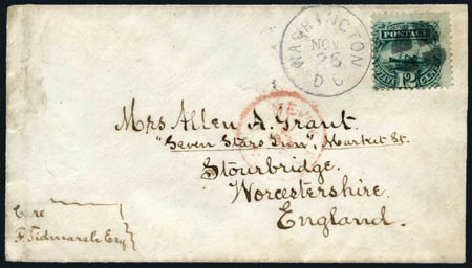 WASHINGTON
NOV
26
D.C.
POSTAGE
12
Mrs Allen A. Grant.
"Seven Stars Inn", Market St.
Stourbridge.
Worcestershire.
England.
Care
F. Tidmarsh Esq
NEW